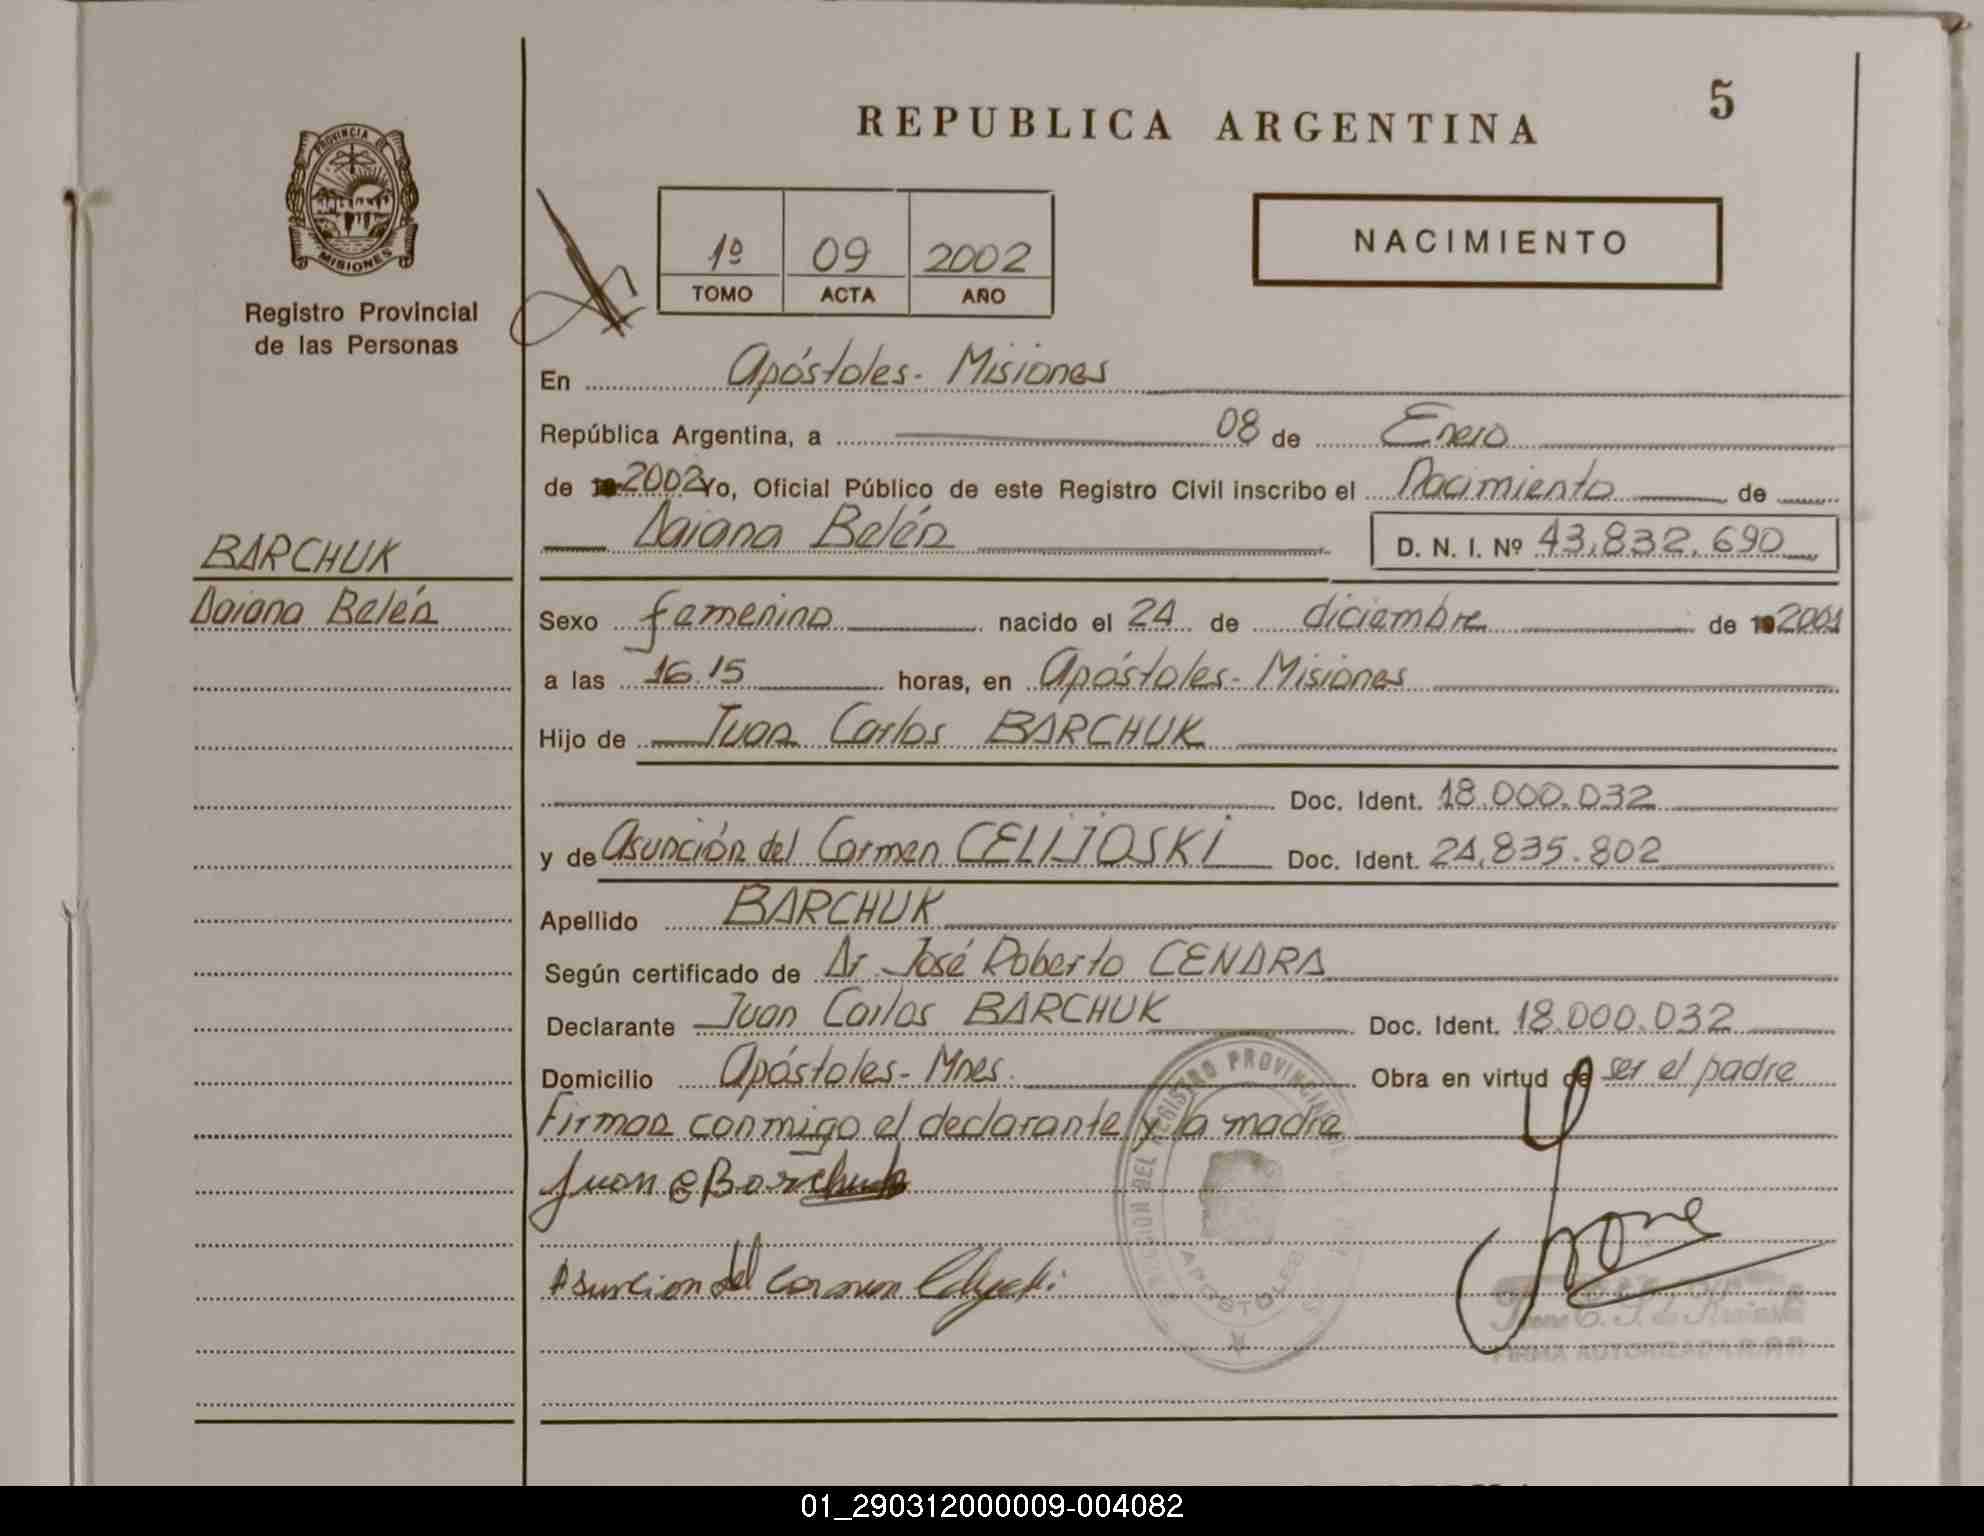 REPUBLICA ARGENTINA
5
PROVINCIA DE
MISIONES
Registro Provincial
de las Personas
1º 09 2002
TOMO ACTA AÑO
NACIMIENTO
En Apóstoles - Misiones
República Argentina, a 08 de Enero
de 2002 Yo, Oficial Público de este Registro Civil inscribo el Nacimiento de
Daiana Belén D. N. I. Nº 43.832.690
BARCHUK
Daiana Belén
Sexo femenino nacido el 24 de diciembre de 2001
a las 16.15 horas, en Apóstoles - Misiones
Hijo de Juan Carlos BARCHUK
Doc. Ident. 18.000.032
y de Asunción del Carmen CELIJOSKI Doc. Ident. 24.835.802
Apellido BARCHUK
Según certificado de Dr. José Roberto CENDRA
Declarante Juan Carlos BARCHUK Doc. Ident. 18.000.032
Domicilio Apóstoles - Mnes. Obra en virtud de ser el padre
Firman conmigo el declarante y la madre
Juan C Barchuk
Asuncion del Carmen
DEL REGISTRO PROVINCIAL
APOSTOLES
FIRMA AUTORIZADA
01_290312000009-004082